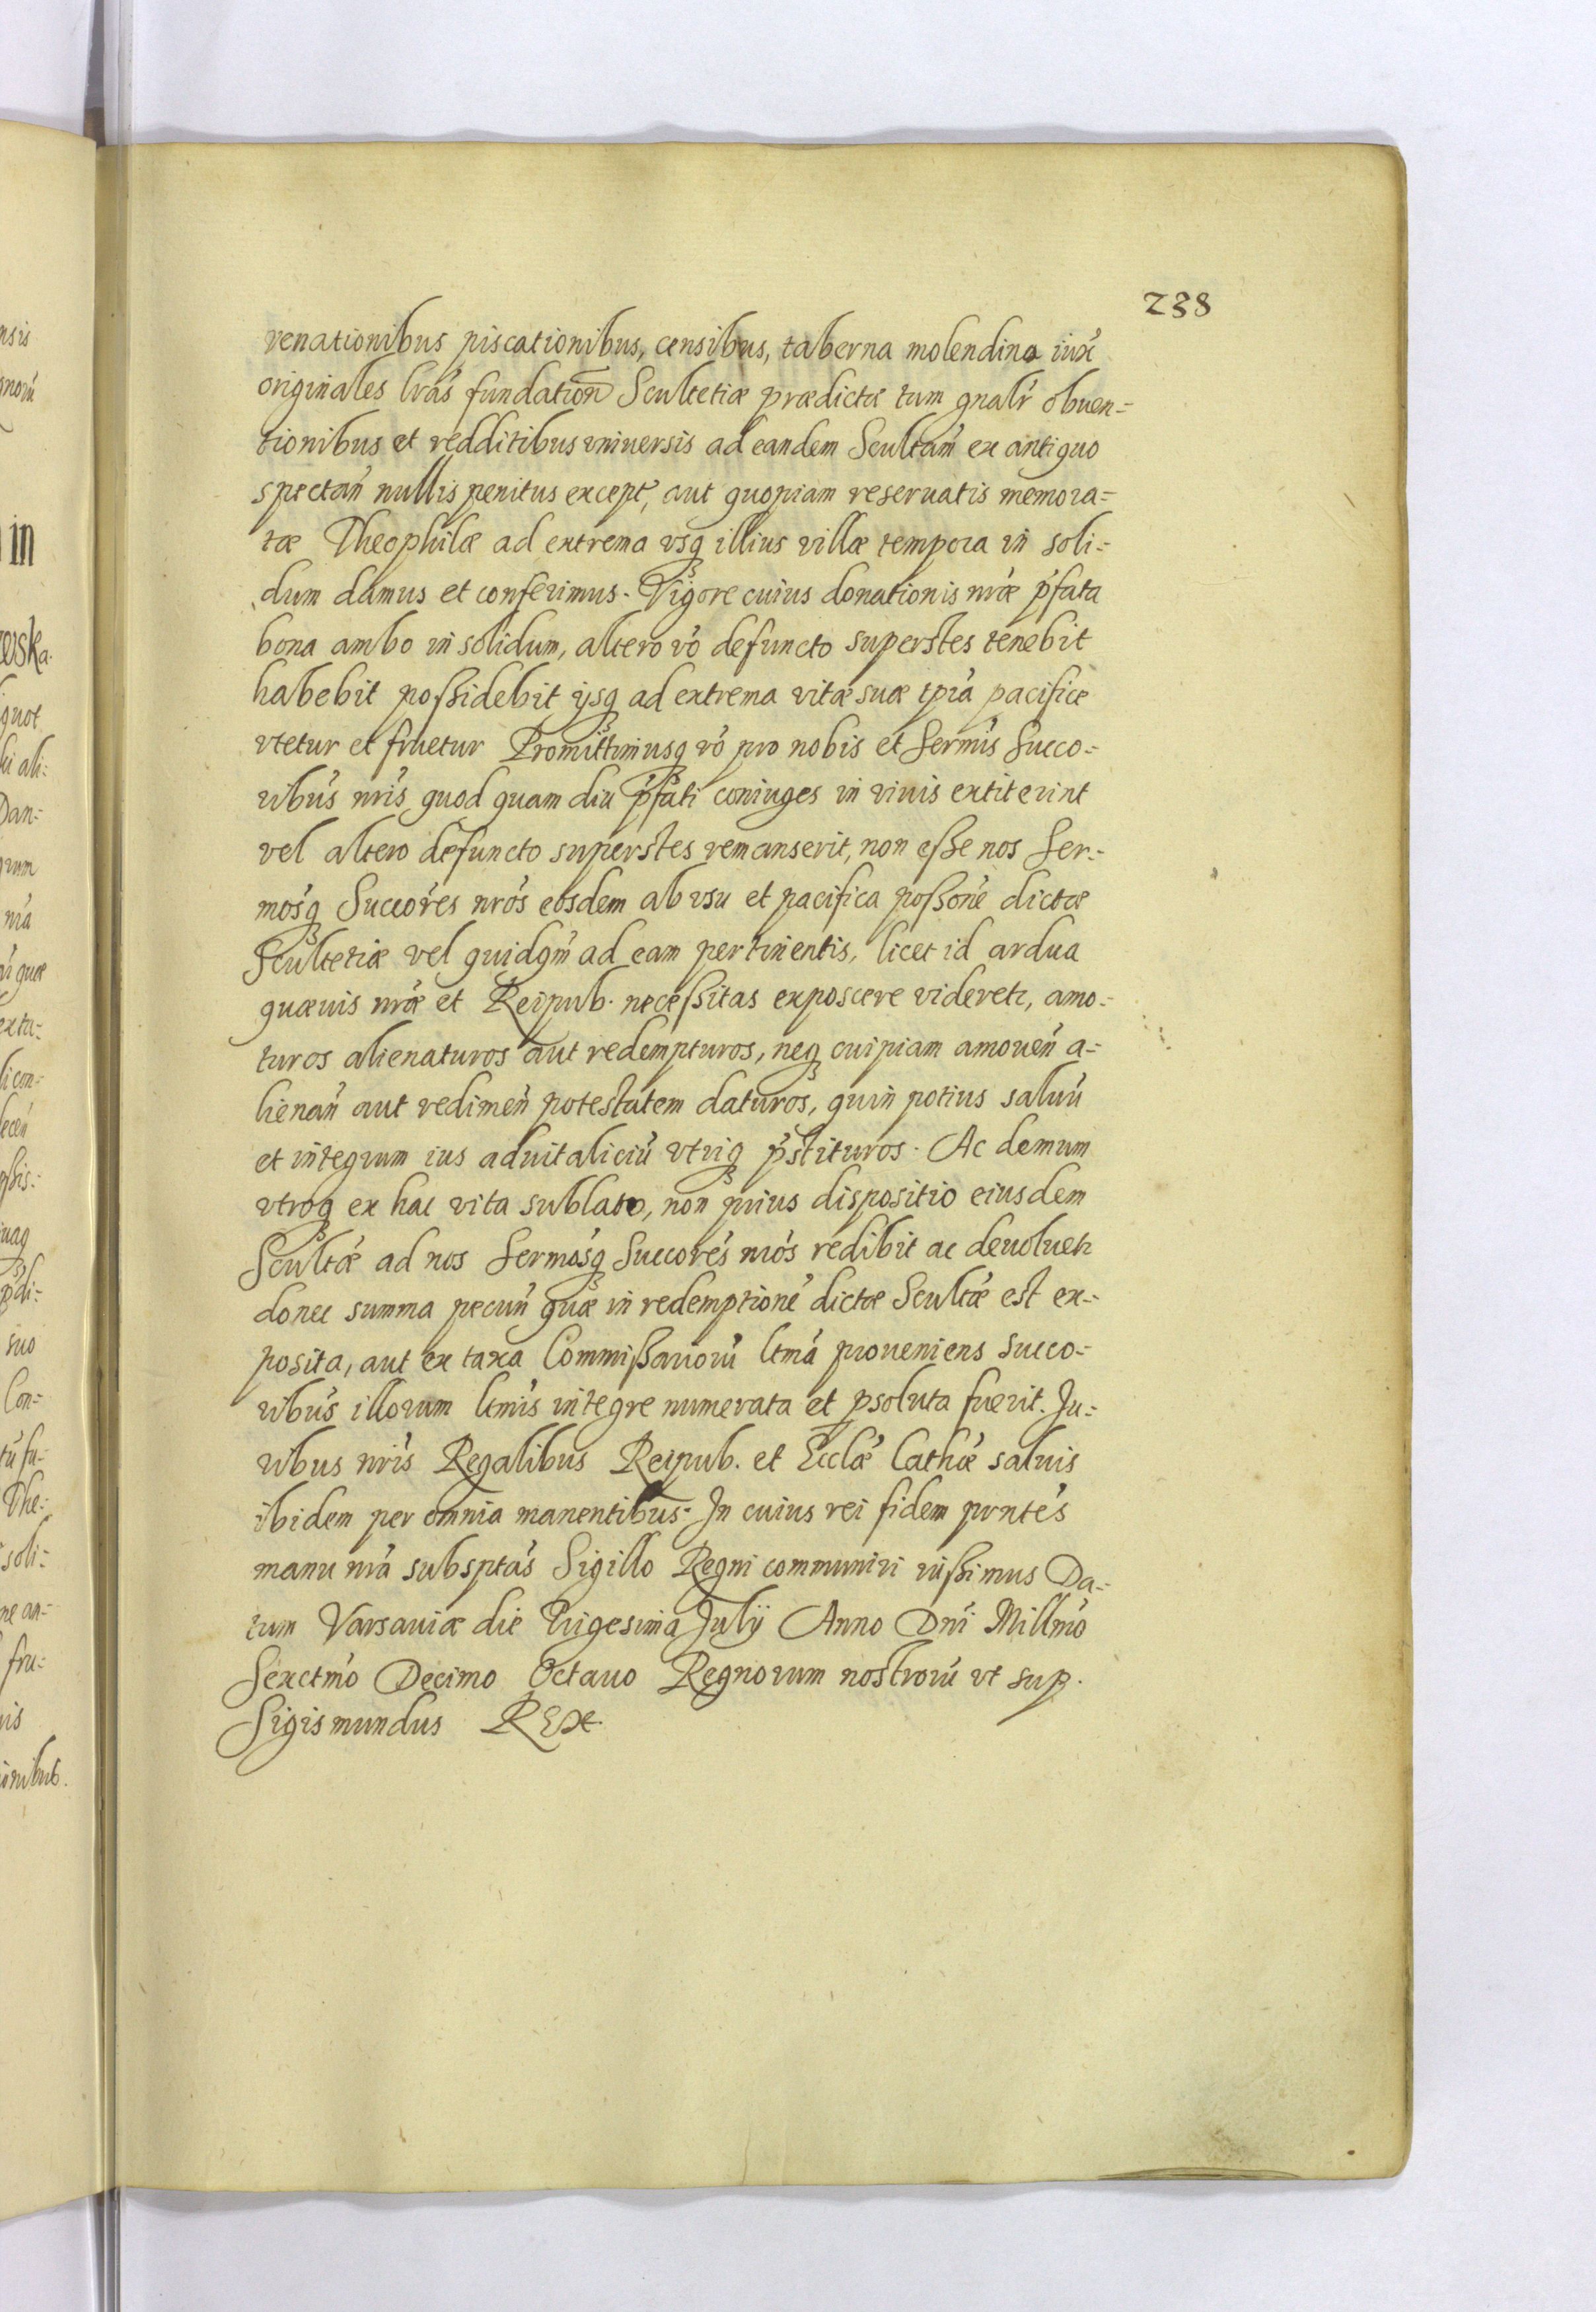 238
venationibus piscationibus, censibus, taberna molendino iux̃
originales lrãs fundation̄ Scultetiæ prædictæ tum gnalr̃ obuen=
tionibus et redditibus vniuersis ad eandem Scultam̃ ex antiquo
spectan̄ nullis penitus except̃, aut quopiam reseruatis memora=
tæ Theophilæ ad extrema vsq illius villæ tempora in soli=
dum damus et conferimus. Vigore cuius donationis nræ p̃fata
bona ambo in solidum, altero vo̓ defuncto superstes tenebit
habebit poßidebit ijsq ad extrema vitæ suæ tpr̃a pacifice
vtetur et fruetur Promittimusq vo̓ pro nobis et Serm̃is Succo=
ribus̃ nrĩs quod quam diu p̃fati coniuges in viuis extiterint
vel altero defuncto superstes remanserit, non eße nos Ser=
mosq̃ Succorẽs nrõs eosdem ab vsu et pacifica poßonẽ dictæ
Scultetiæ vel quidqm̃ ad eam pertinentis, licet id ardua
quæuis nrã et Reipub. neceßitas exposcere videretr, amo=
turos alienaturos aut redempturos, neq cuipiam amouen̄ a=
lienan̄ aut redimen̄ potestatem daturos, quin potius saluũ
et integrum ius aduitaliciũ vtriq p̃stituros. Ac demum
vtroq ex hac vita sublato, non prius dispositio eiusdem
Scultæ̃ ad nos Sermosq̃ Succorẽs nrõs redibit ac deuoluetr
donec summa pecun̄ quæ in redemptionẽ dictæ Scultæ̃ est ex=
posita, aut ex taxa Commißariorũ ltmã proueniens Succo=
ribus̃ illorum ltmĩs integre numerata et psoluta fuerit. Ju=
ribus nrĩs Regalibus Reipub. et Ecclæ̃ Cathæ̃ saluis
ibidem per omnia manentibus. In cuius rei fidem prntẽs
manu nrã subsptãs Sigillo Regni communiri iußimus Da=
tum Varsauiæ die Trigesima July Anno Dnĩ Millmõ
Sexctmõ Decimo Octauo Regnorum nostrorũ vt sup.
Sigismundus REX.